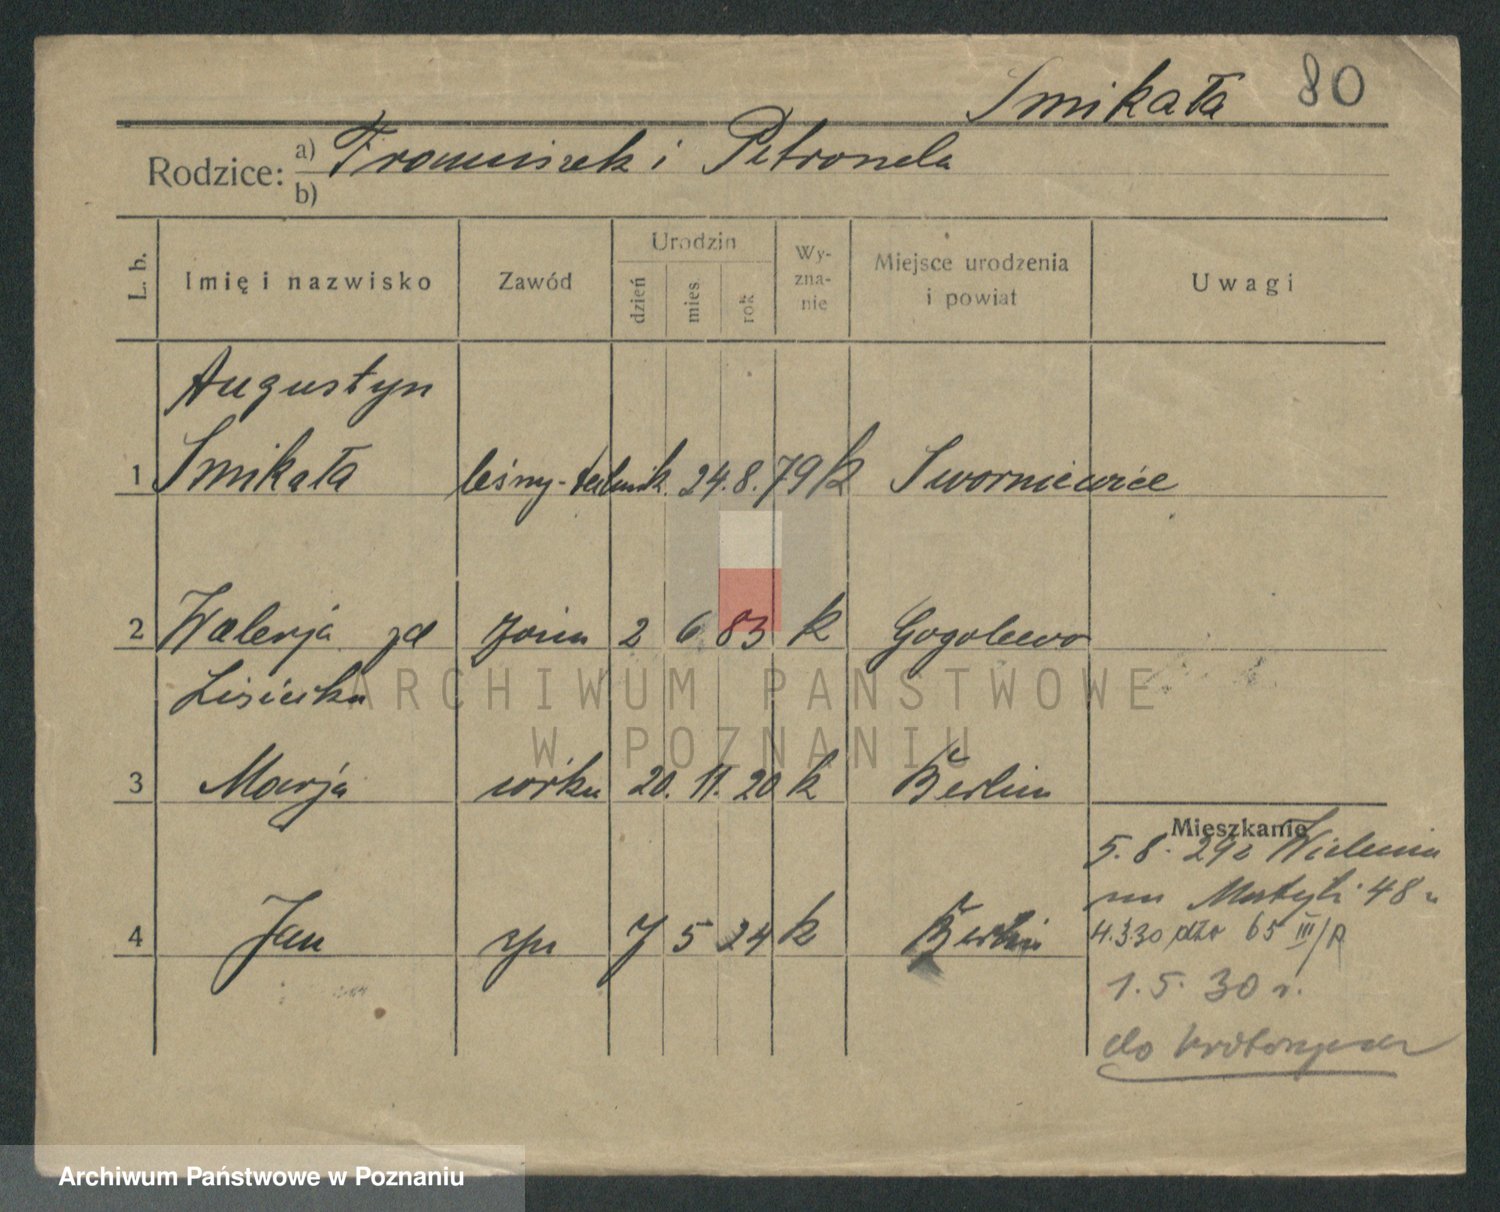 Smikała 80
Rodzice: a) Franciszek i Petronela
b)
L. b. Imię i nazwisko Zawód Urodzin dzień mies. rok Wy-zna-nie Miejsce urodzenia i powiat Uwagi
Augustyn
1 Smikała leśny-technik. 24. 8. 79 k Swierniewice
2 Walerja zd żona 2 6 83 k Gogolewo
Lisiecka
ARCHIWUM PAŃSTWOWE
W POZNANIU
3 Marja córka 20. 11. 20 k Berlin
Mieszkanie
5. 8. 29 z Wielunia
4 Jan syn 7 5 24 k Berlin
48
4.3.30 65 III/p
1. 5. 30 r.
do Krotoszyna
Archiwum Państwowe w Poznaniu